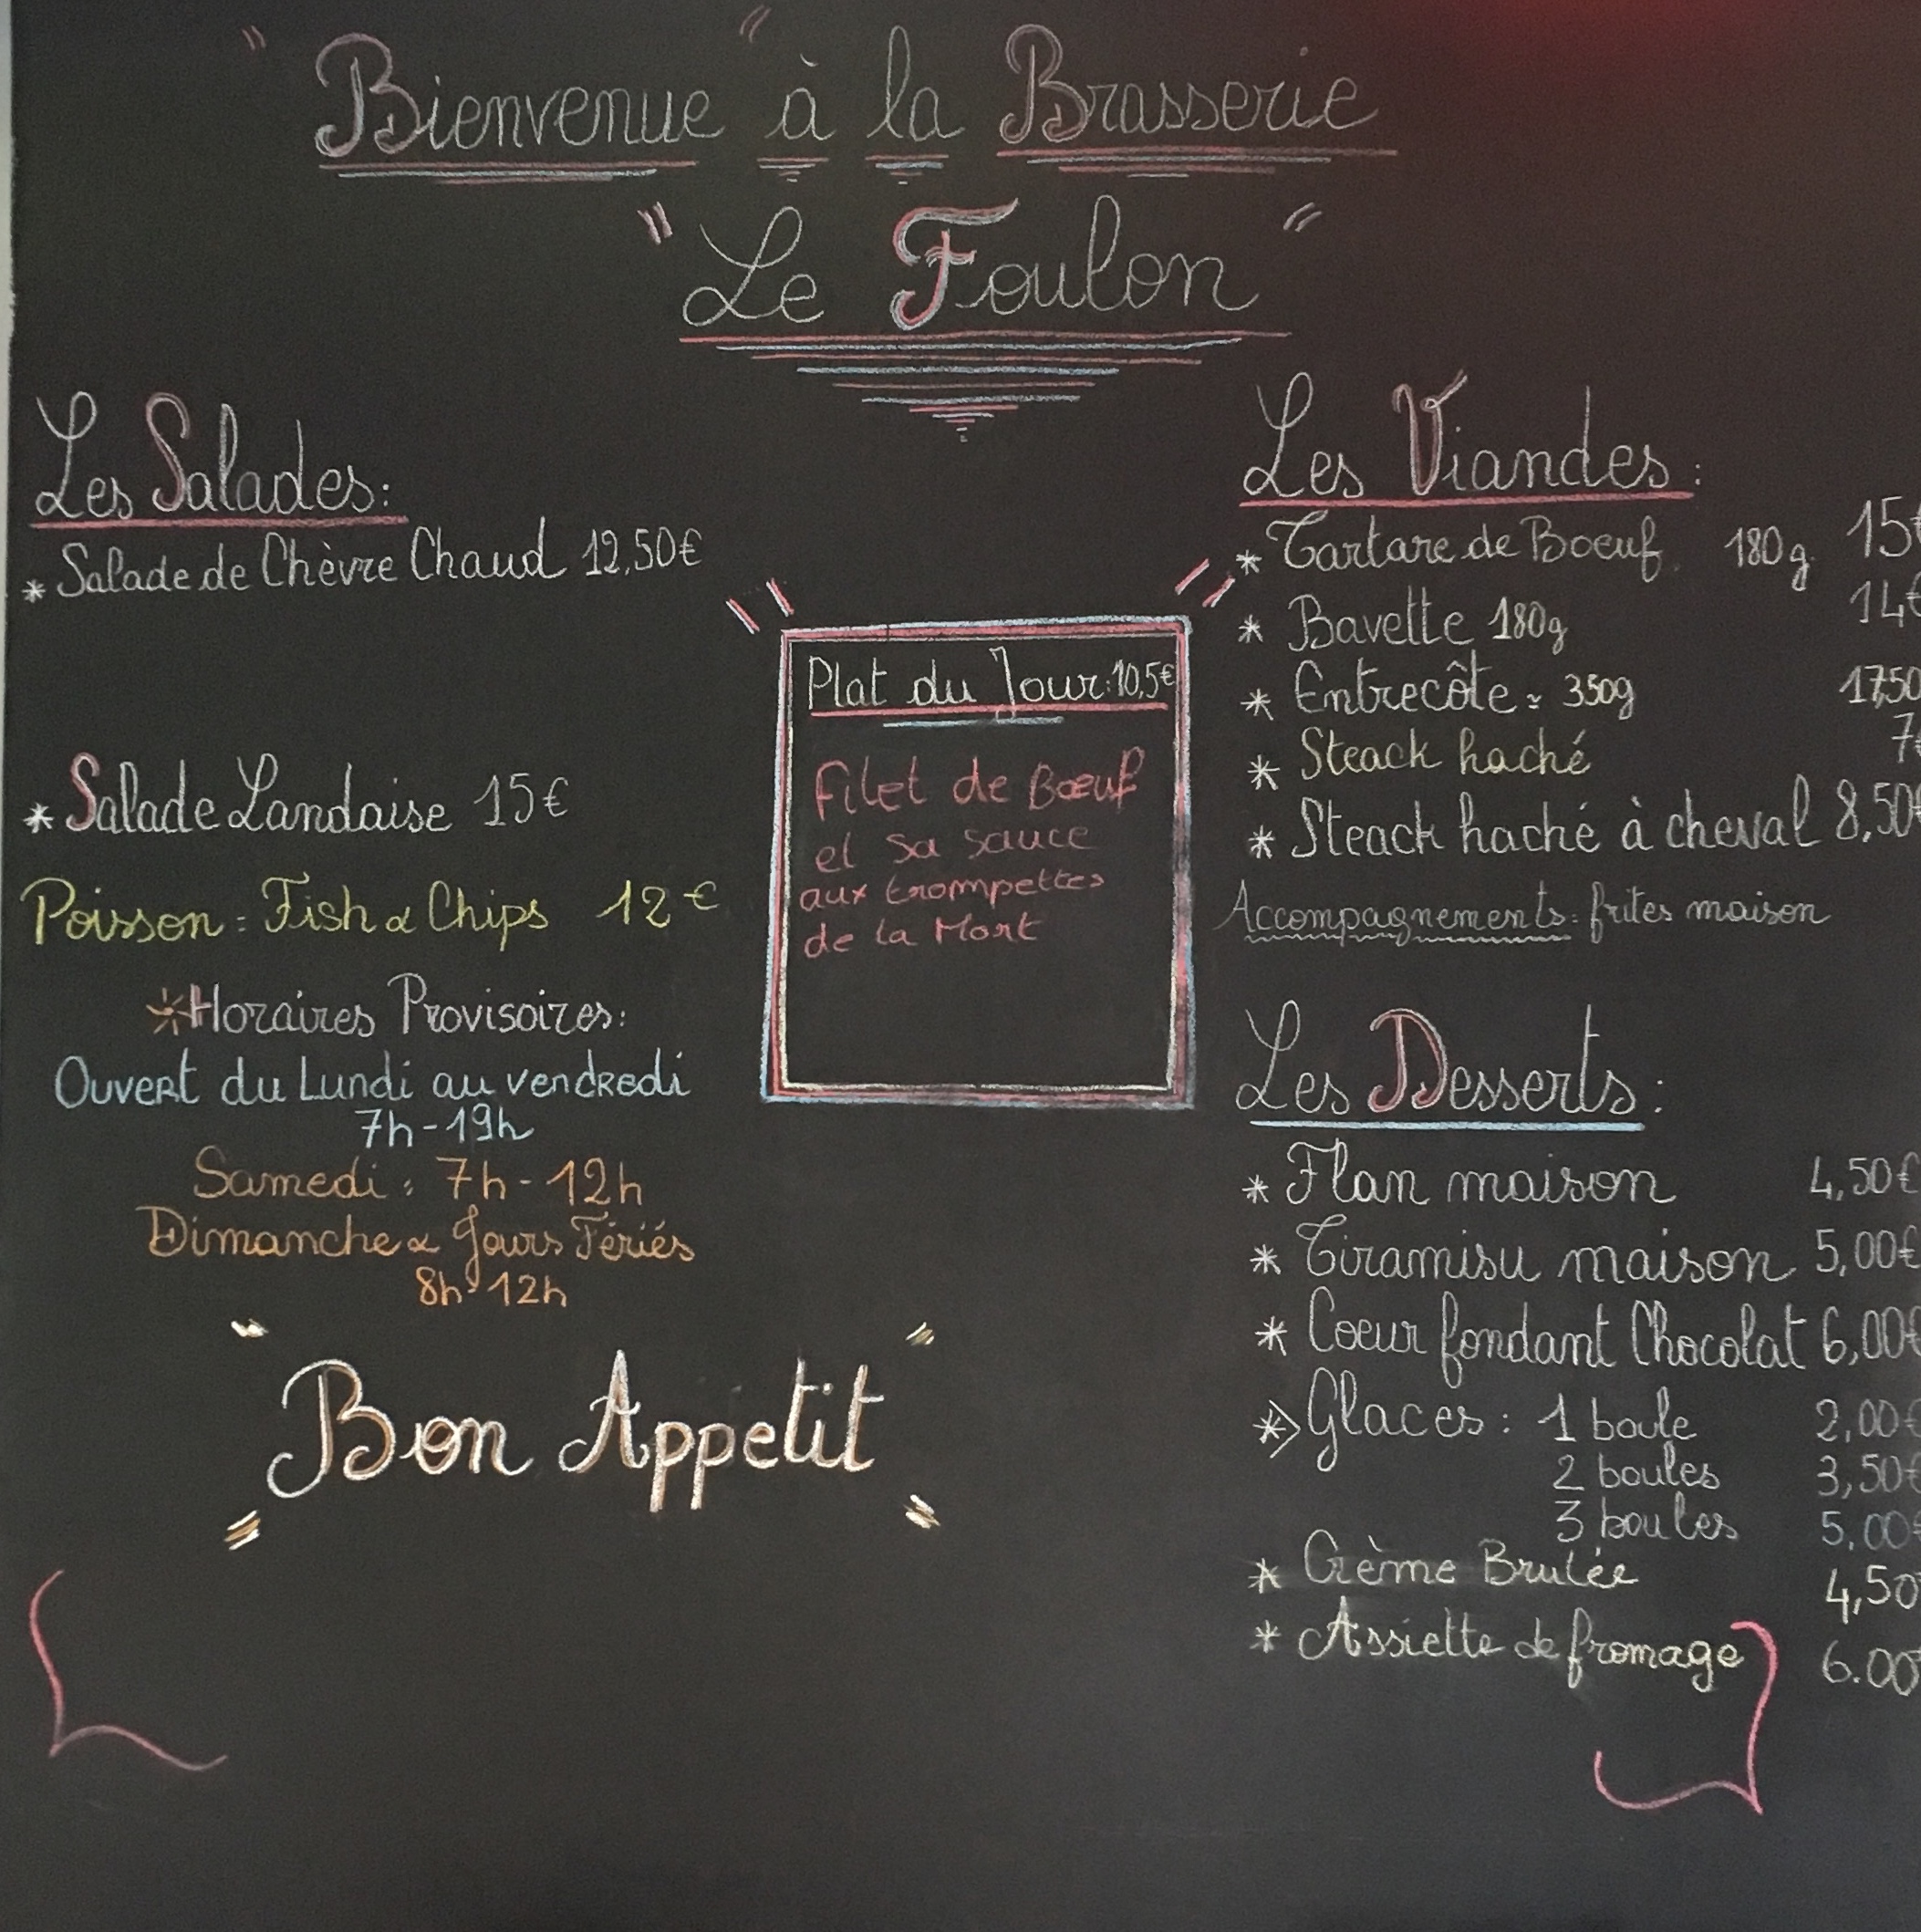 "Bienvenue" à la Brasserie
"Le Foulon"
Les Salades:
* Salade de Chèvre Chaud 12,50€
* Salade Landaise 15€
Poisson: Fish & Chips 12€
* Horaires Provisoires:
Ouvert du Lundi au vendredi
7h-19h
Samedi: 7h-12h
Dimanche & Jours Fériés
8h-12h
Bon Appetit
Plat du Jour: 10,5€
Filet de Bœuf
et sa sauce
aux trompettes
de la Mort
Les Viandes:
* Tartare de Boeuf 180g 15€
* Bavette 180g 14€
* Entrecôte ≃ 350g 17,50
* Steack haché 7€
* Steack haché à cheval 8,50€
Accompagnements: frites maison
Les Desserts:
* Flan maison 4,50€
* Tiramisu maison 5,00€
* Coeur fondant Chocolat 6,00€
* Glaces: 1 boule 2,00€
2 boules 3,50€
3 boules 5,00€
* Crème Brulée 4,50
* Assiette de fromage 6.00